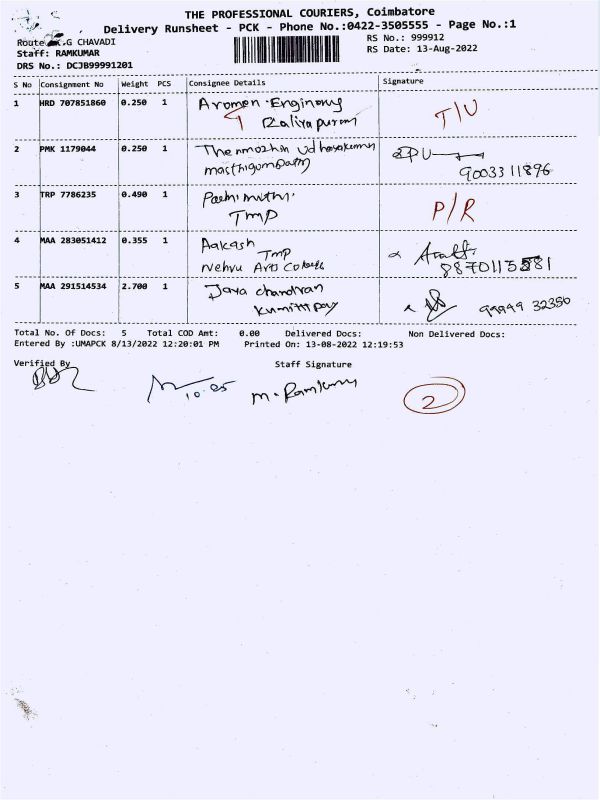 THE PROFESSIONAL COURIERS, Coimbatore
Delivery Runsheet - PCK - Phone No.:0422-3505555 - Page No.:1
Route K.G CHAVADI
RS No.: 999912
Staff: RAMKUMAR
RS Date: 13-Aug-2022
DRS No.: DCJB99991201
S No Consignment No Weight PCS Consignee Details Signature
1 HRD 707851860 0.250 1 Aromen Enginering T/U
Kaliyapuram
2 PMK 1179044 0.250 1 Thenmozhin Udhayakumar
9003311896
3 TRP 7786235 0.490 1 P/R
TMP
4 MAA 283051412 0.355 1 Aakash
TMP
Nehru Arts College
5 MAA 291514534 2.700 1 Jaya chandran
99949 32350
Total No. Of Docs: 5 Total COD Amt: 0.00 Delivered Docs: Non Delivered Docs:
Entered By :UMAPCK 8/13/2022 12:20:01 PM Printed On: 13-08-2022 12:19:53
Verified By Staff Signature
10.05
M. Ramkumar
2